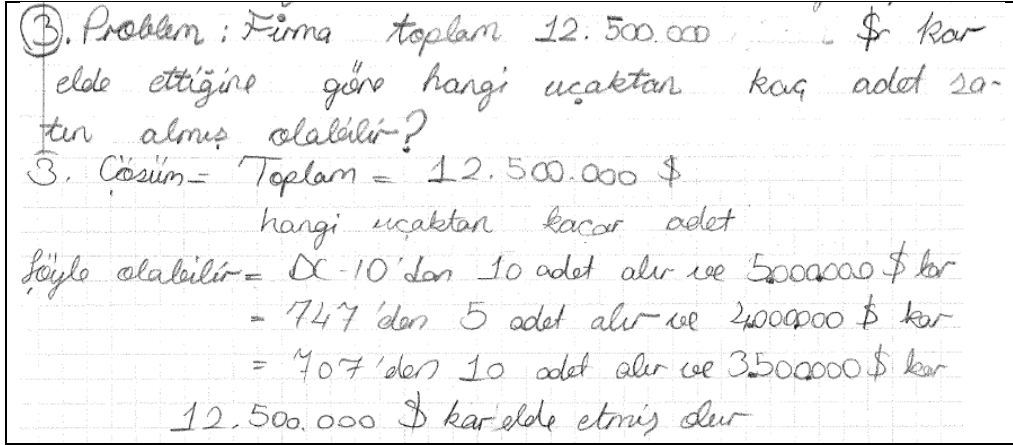 3. Problem : Firma toplam 12.500.000 $ kar
elde ettiğine göre hangi uçaktan kaç adet sa-
tın almış olabilir?
3. Çösüm = Toplam = 12.500.000 $
hangi uçaktan kaçar adet
şöyle olabilir = DC-10'dan 10 adet alır ve 5.000.000 $ kar
= 747'den 5 adet alır ve 4.000.000 $ kar
= 707'den 10 adet alır ve 3.500.000 $ kar
12.500.000 $ kar elde etmiş olur